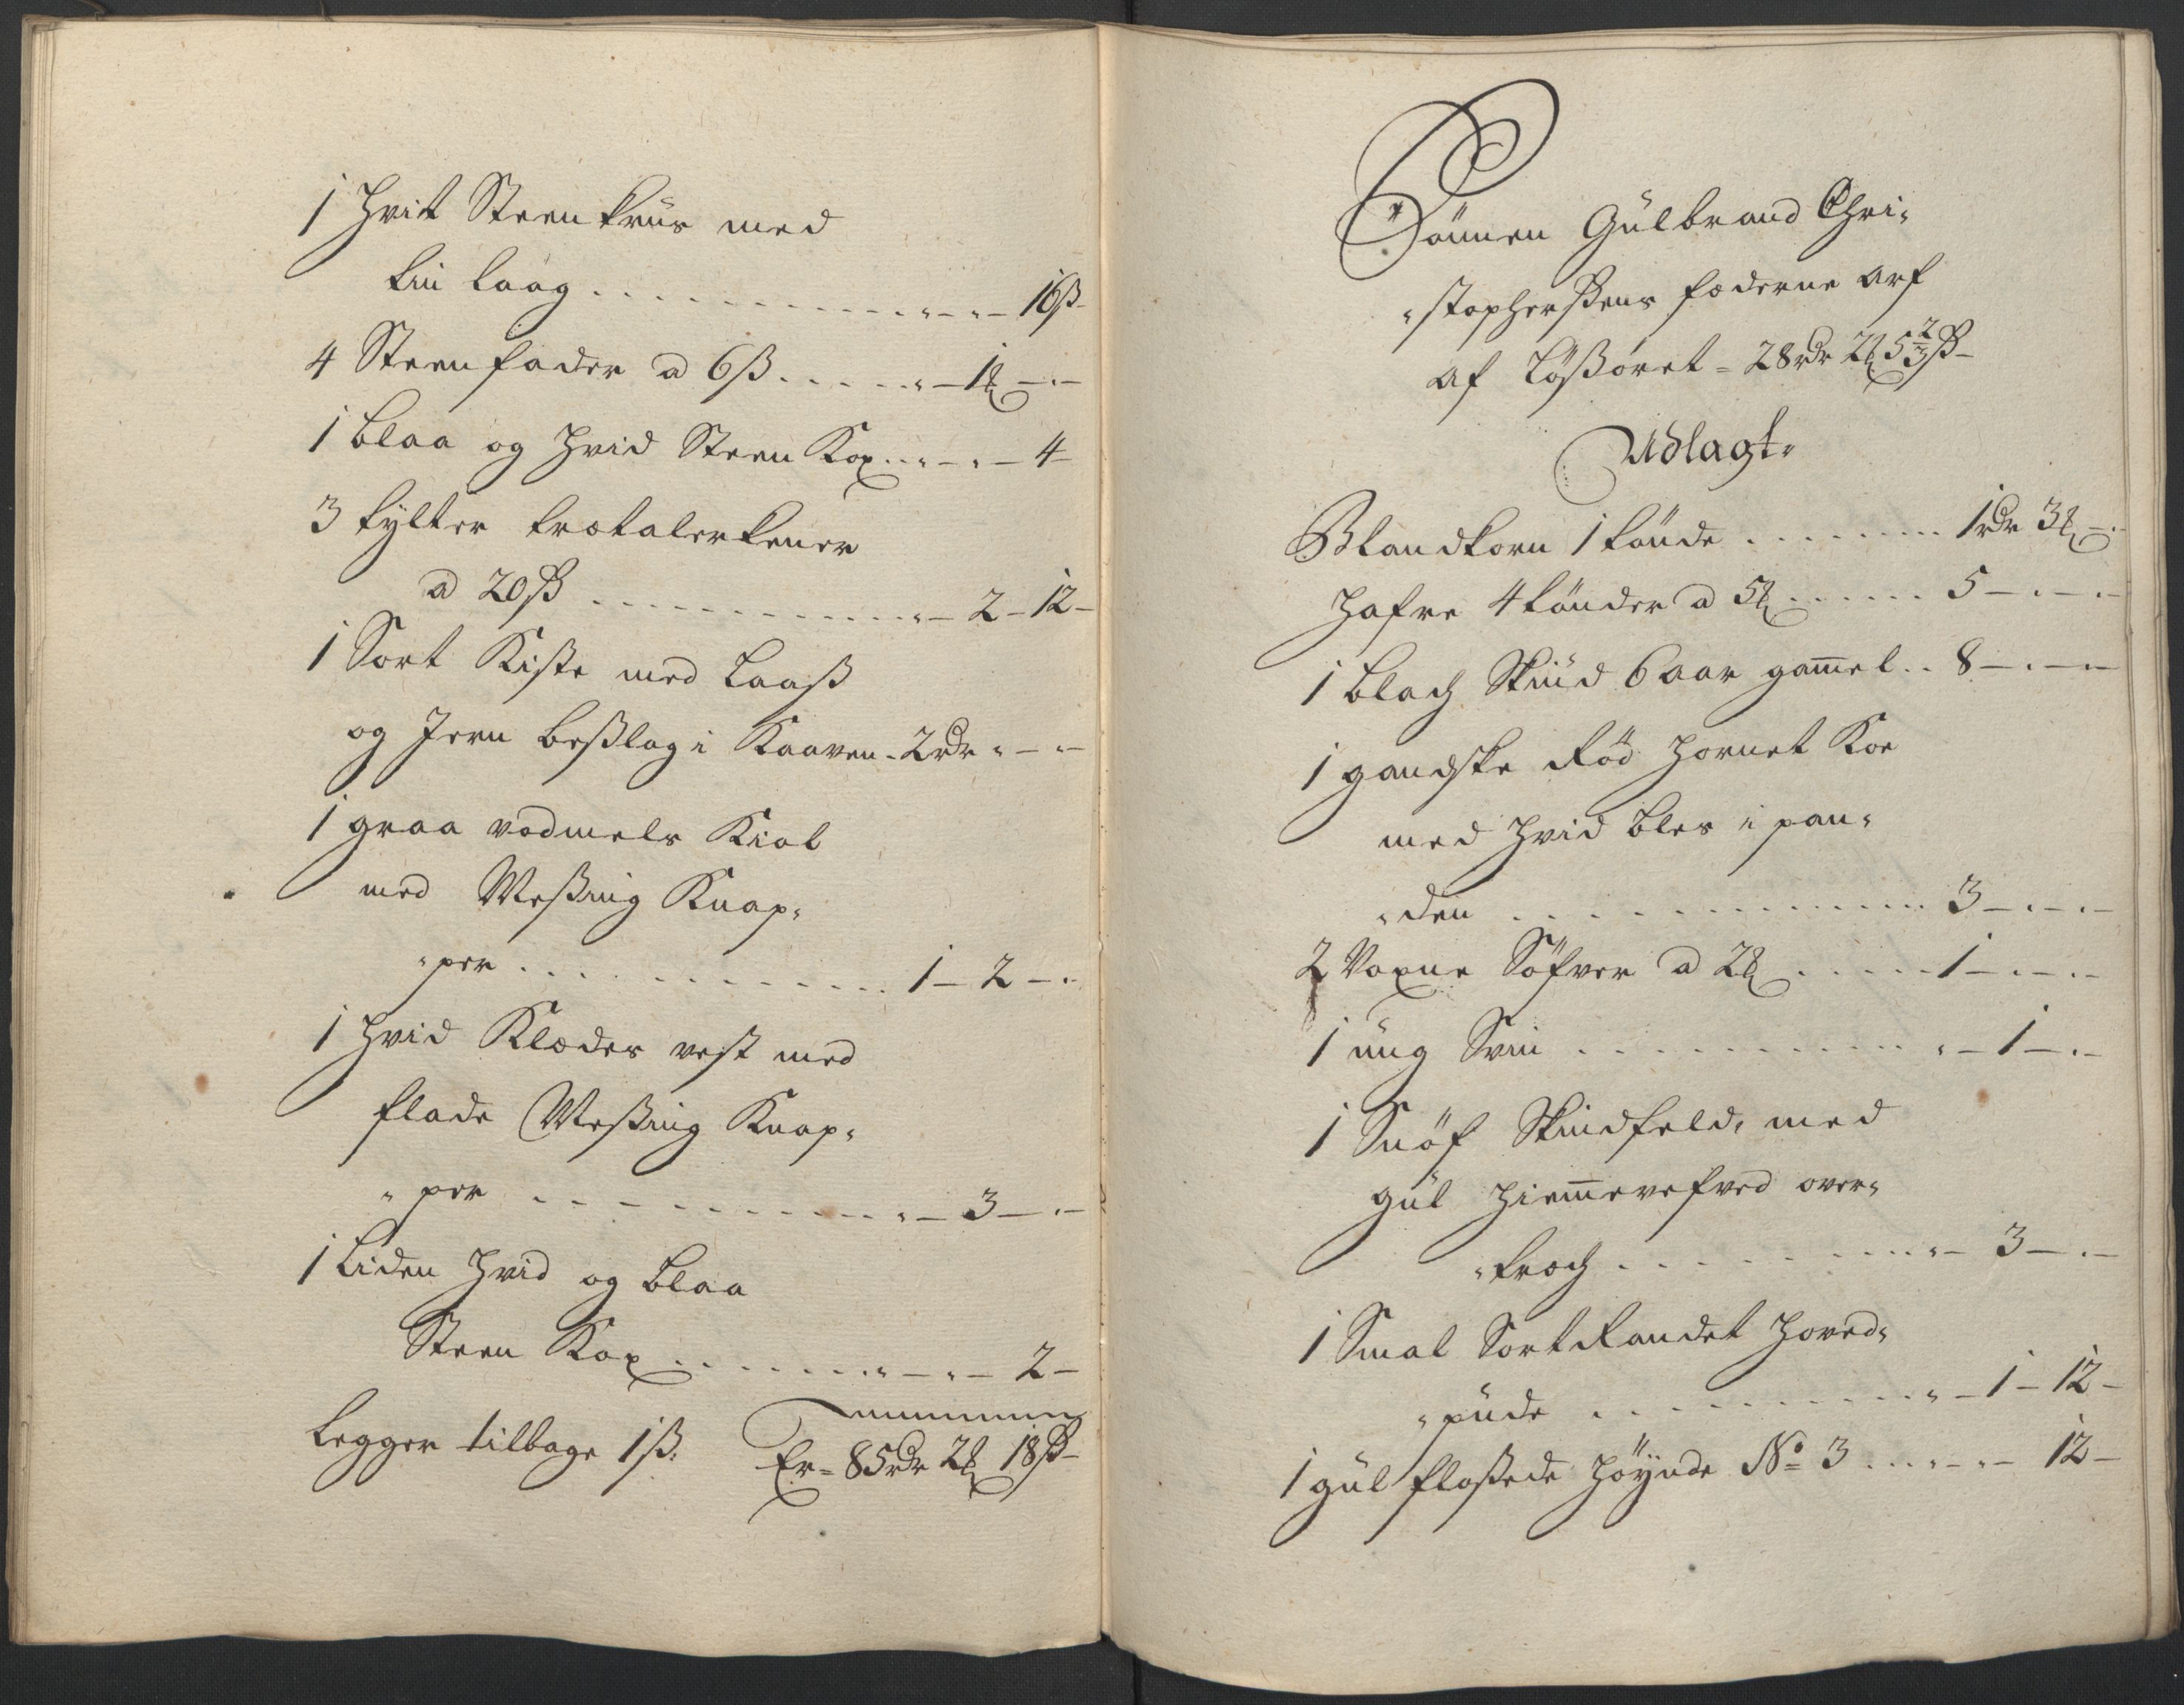 1 Hvit Steenkruus med
tin laag . . . . . . . . . . " — " — 16ß —
4 Steenfader a 6ß . . . . . " — 1 — " —
1 blaa og Hvid Steen Kop . . " — " — 4 —
3 tylter trætalerkener
a 20ß . . . . . . . . . . " — 2 — 12 —
1 Sort Kiste med Laaß
og Jern beßlag i Kaaven . 2rdr " — " —
1 graa vadmels Kiol
med Meßing Knap„
„per . . . . . . . . . . 1 — 2 — "
1 Hvid Klædes vest med
flade Meßing Knap„
„per . . . . . . . . . . " — 3 — " —
1 Liden Hvid og blaa
Steen Kop . . . . . . . " — " — 2 —
Legger tilbage 1ß. Er = 85rdr 2 18ß —
Sönnen Gülbrand Chri„
„stopherßens fæderne Arf
af Lößöret = 28rdr 2 5 2/3ß —
Udlagt„
Blandkorn 1 tönde . . . . . . . 1rdr 3 — "
Hafre 4 tönder a 5 . . . . . . 5 — " — " —
1 blach Skiud 6 aar gam̅el . . 8 — " — " —
1 gandske Rød Hornet Koe
med Hvid bles i pan„
„den . . . . . . . . . . . 3 — " — " —
2 Voxne Söfver a 2 . . . . . 1 — " — " —
1 üng Svin . . . . . . . . . . " — 1 — " —
1 Snöf Skindfeld, med
gül Hiem̅evefved over„
„træch . . . . . . . . . " — 3 — " —
1 Smal Sort Randet Hoved„
„püde . . . . . . . . . . " — 1 — 12 —
1 gül floßede Höynde No 3 . . . " — " — 12 —